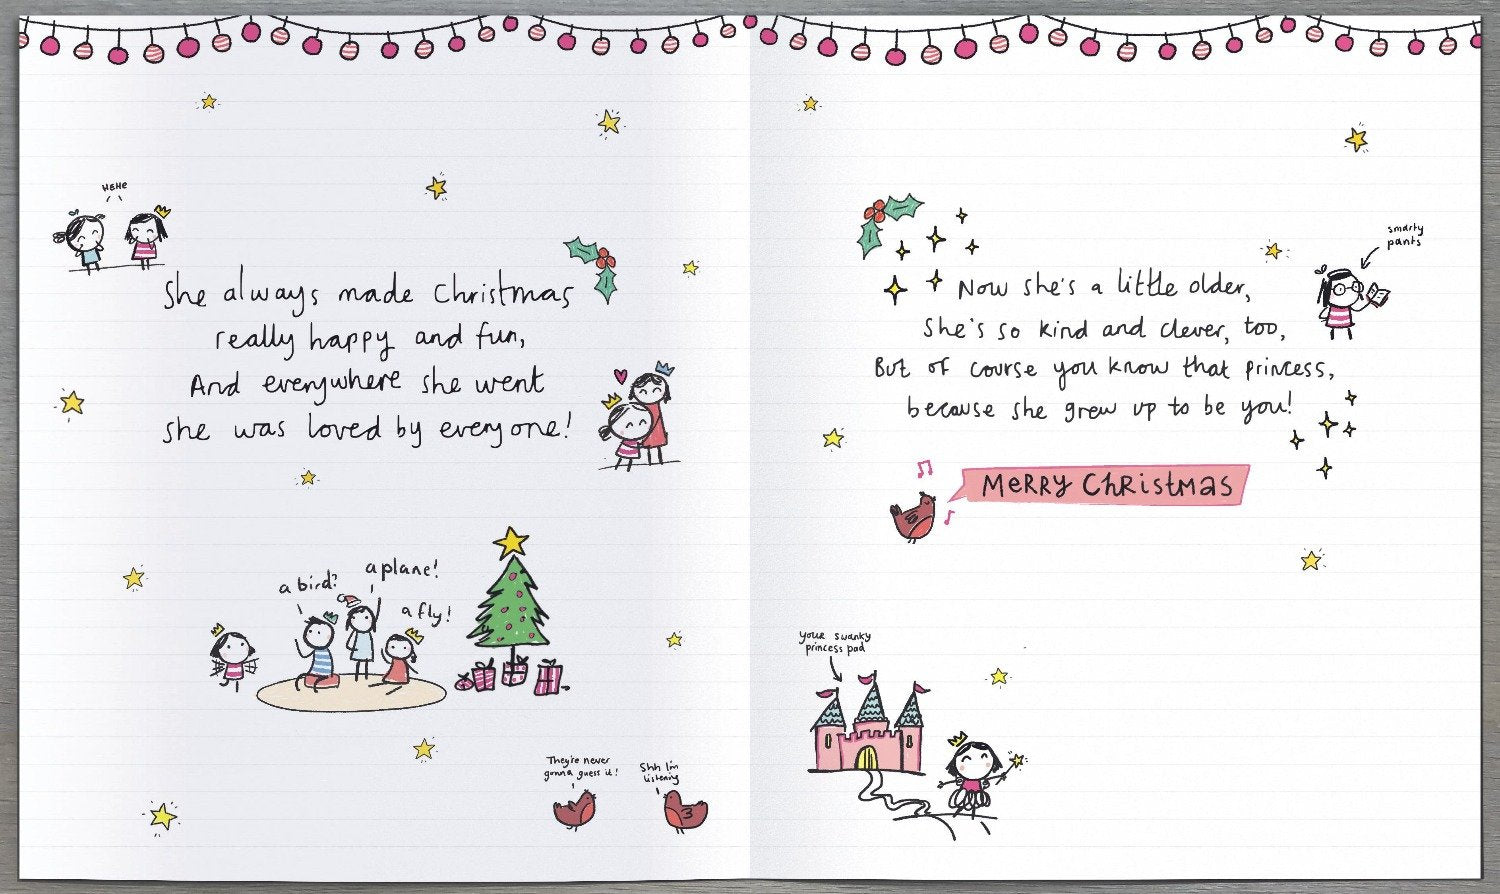 HEHE
She always made Christmas
really happy and fun,
And everywhere she went
she was loved by everyone!
a bird?
a plane!
a fly!
They're never
gonna guess it!
Shh I'm
listening
smarty
pants
Now she's a little older,
She's so kind and clever, too,
But of course you know that princess,
because she grew up to be you!
MERRY CHRISTMAS
your swanky
princess pad